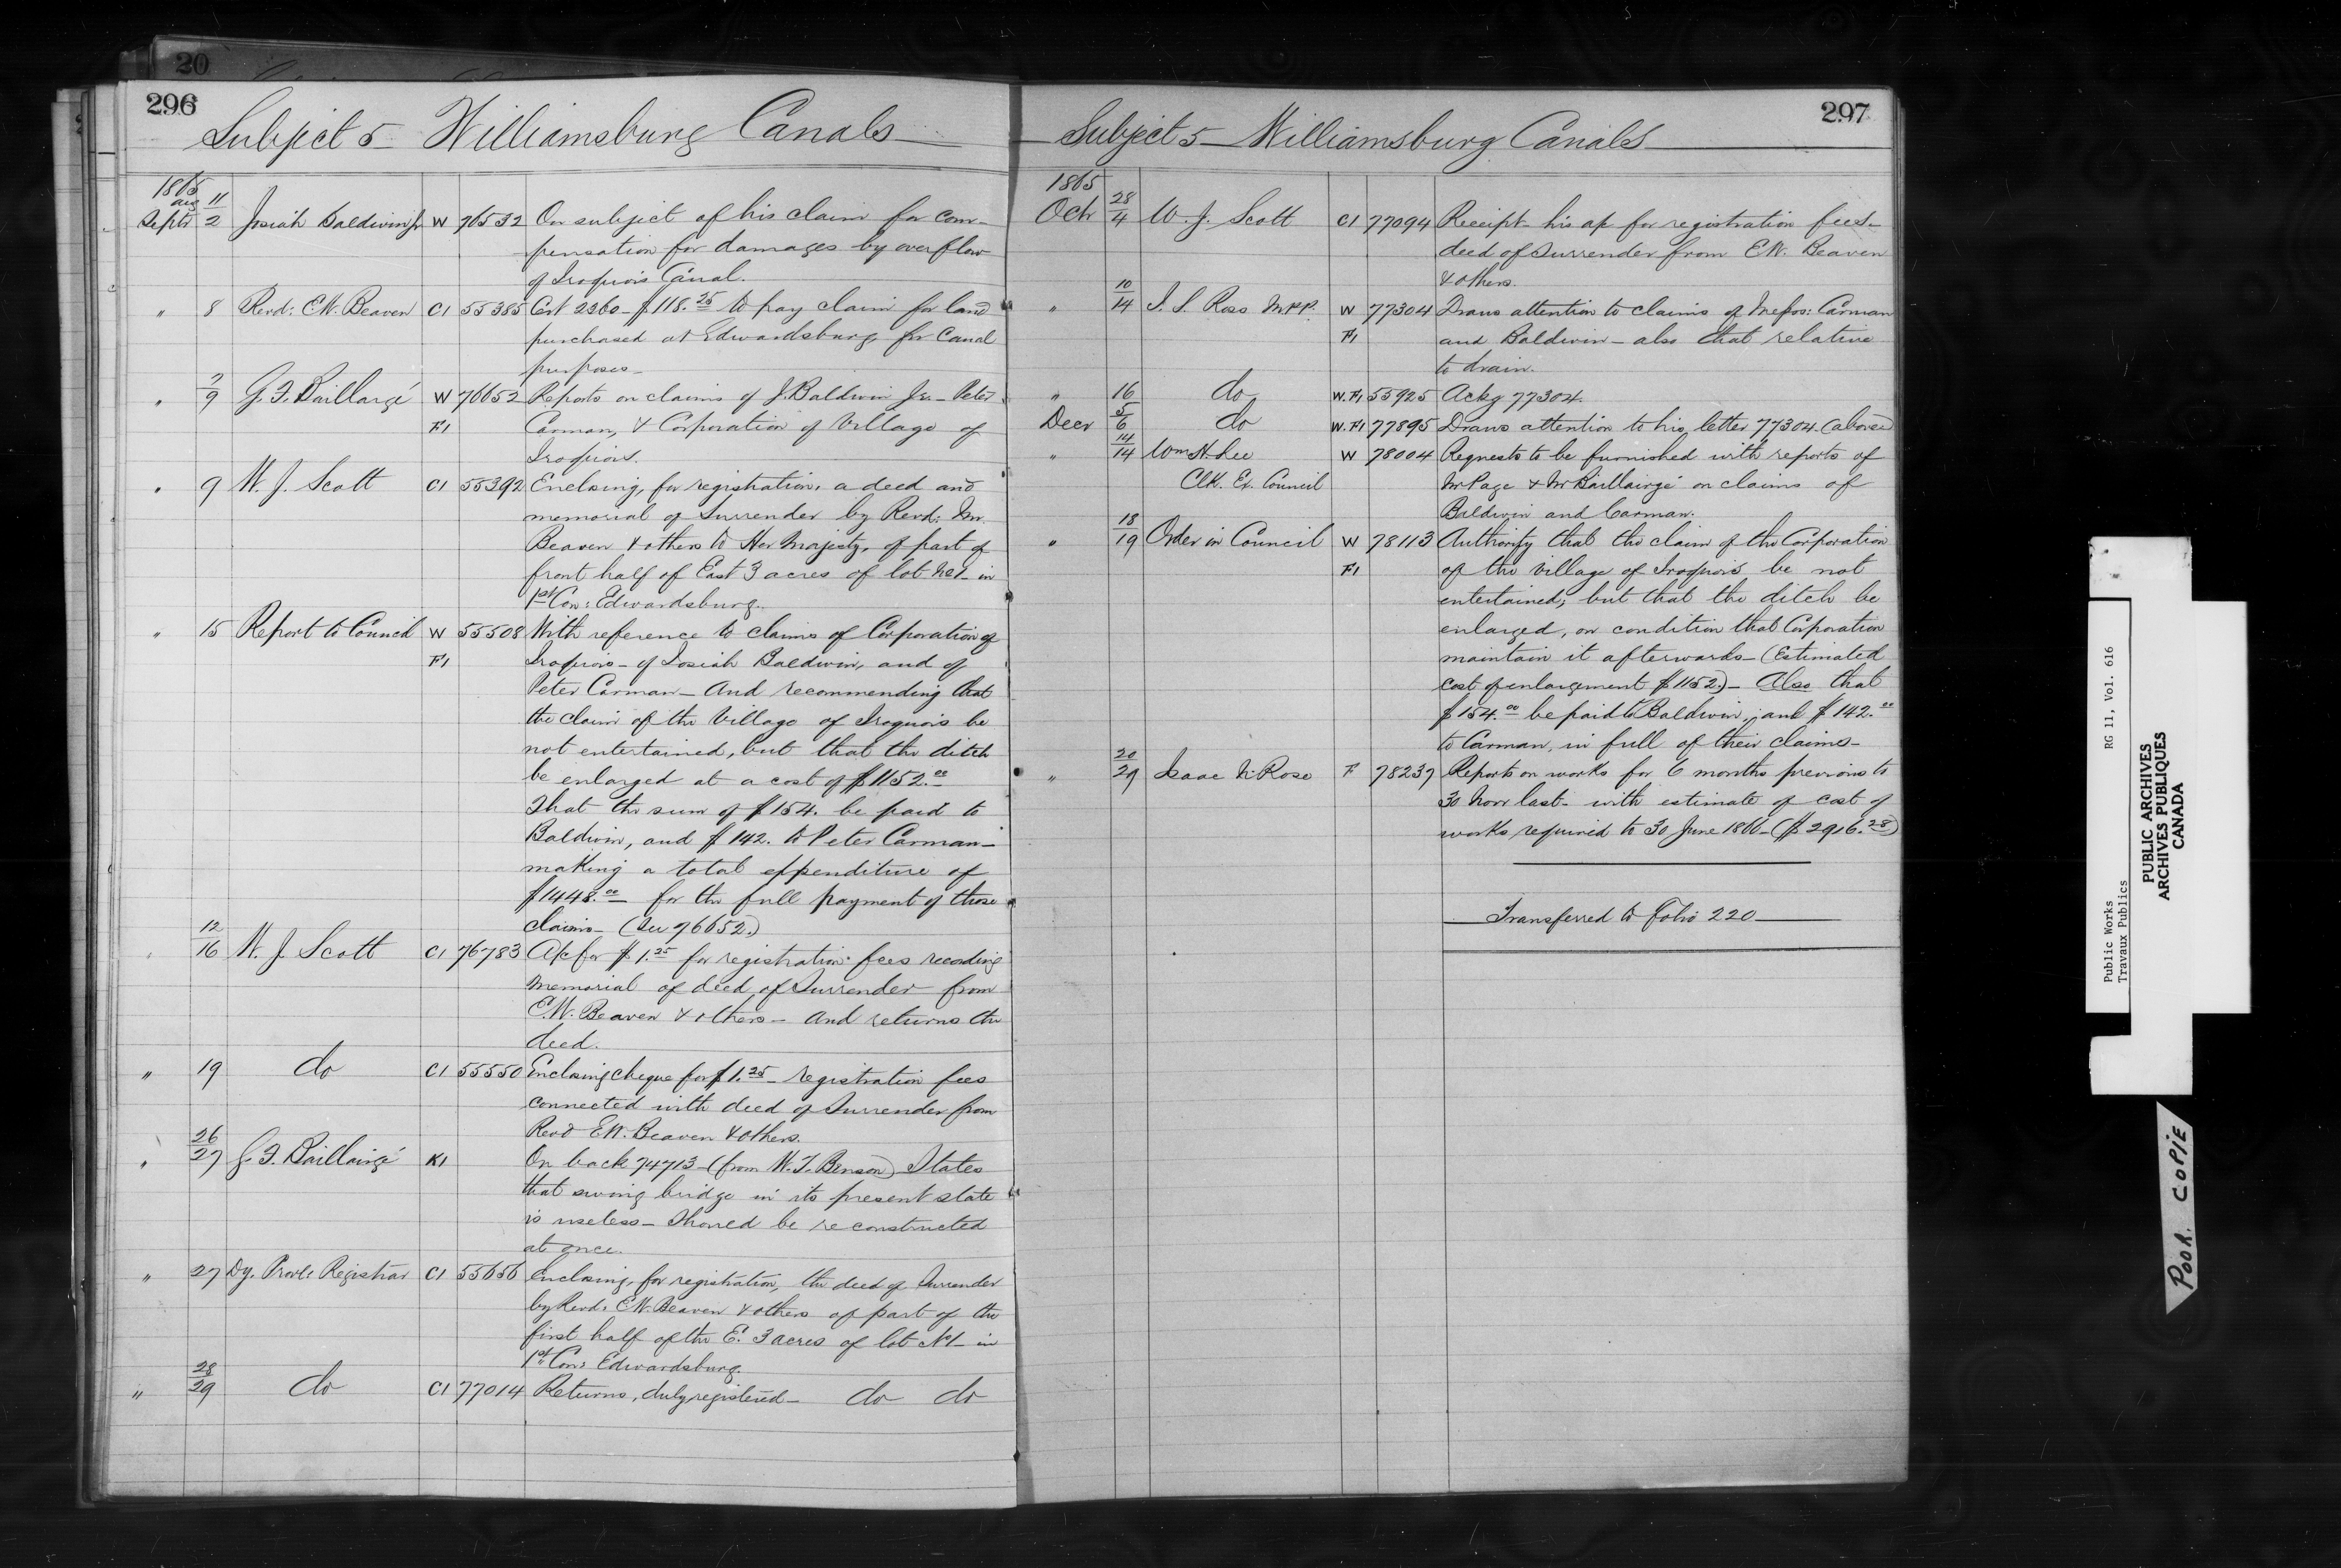 20
296
Subject 5 Williamsburg Canals
1865
Aug 11
Septr 2 Josiah Baldwin Jr W 76532 On subject of his claim for com-
pensation for damages by overflow
of Iroquois Canal.
" 8 Revd: E.W. Beaven C1 55385 Cert 2360 - $118.25 to pay claim for land
purchased at Edwardsburg for Canal
purposes -
" 7/9 G.F. Baillargé W 76652 Reports on claims of J. Baldwin Jr - Peter
F1 Carman, & Corporation of Village of
Iroquois.
" 9 W. J. Scott C1 55392 Enclosing, for registration, a deed and
memorial of Surrender by Revd: Mr.
Beaven & others to Her Majesty, of part of
front half of East 3 acres of lot No 1 - in
1st Con: Edwardsburg.
" 15 Report to Council W 55508 With reference to claims of Corporation of
F1 Iroquois - of Josiah Baldwin, and of
Peter Carman - And recommending that
the claim of the Village of Iroquois be
not entertained, but that the ditch
be enlarged at a cost of $1152.00
That the sum of $154. be paid to
Baldwin, and $142. to Peter Carman -
making a total expenditure of
$1448.00 - for the full payment of those
claims - (See 76652.)
" 12/16 W. J. Scott C1 76783 A/c for $1.25 for registration fees recording
Memorial of deed of Surrender from
E.W. Beaven & others - And returns the
deed.
" 19 do C1 55550 Enclosing cheque for $1.25 - registration fees
connected with deed of Surrender from
Revd E.W. Beaven & others.
" 26/27 G. F. Baillairgé K1 On back 74713 - (from W. T. Benson) States
that swing bridge in its present state
is useless - Should be reconstructed
at once.
" 27 Dy. Provl Registrar C1 55656 Enclosing, for registration, the deed of Surrender
by Revd: E.W. Beaven & others of part of the
first half of the E. 3 acres of lot No 1 - in
1st Con: Edwardsburg.
" 28/29 do C1 77014 Returns, duly registered - do do
297
Subject 5 - Williamsburg Canals
1865
Octr 28/4 W. J. Scott C1 77094 Receipt his a/c for registration fees -
deed of Surrender from E.W. Beaven
& others.
" 10/14 J. S. Ross M.P.P. W 77304 Draws attention to claims of Messrs: Carman
F1 and Baldwin - also that relative
to drain.
" 16 do W.F1 55925 Ackg 77304.
Decr 5/6 do W.F1 77895 Draws attention to his letter 77304. (above)
" 14/14 Wm H. Lee W 78004 Requests to be furnished with reports of
Clk. Ex. Council Mr Page & Mr Baillairgé on claims of
Baldwin and Carman.
" 18/19 Order in Council W 78113 Authority that the claim of the Corporation
F1 of the Village of Iroquois be not
entertained; but that the ditch be
enlarged, on condition that Corporation
maintain it afterwards - (Estimated
cost of enlargement $1152.) - Also that
$154.00 be paid to Baldwin, and $142.00
to Carman, in full of their claims -
" 20/29 Isaac N. Rose F 78237 Reports on works for 6 months previous to
30 Novr last - with estimate of cost of
works required to 30 June 1866 - ($2916.28)
Transferred to Folio 220
Public Works RG 11, Vol. 616
Travaux Publics
PUBLIC ARCHIVES
ARCHIVES PUBLIQUES
CANADA
POOR. COPIE